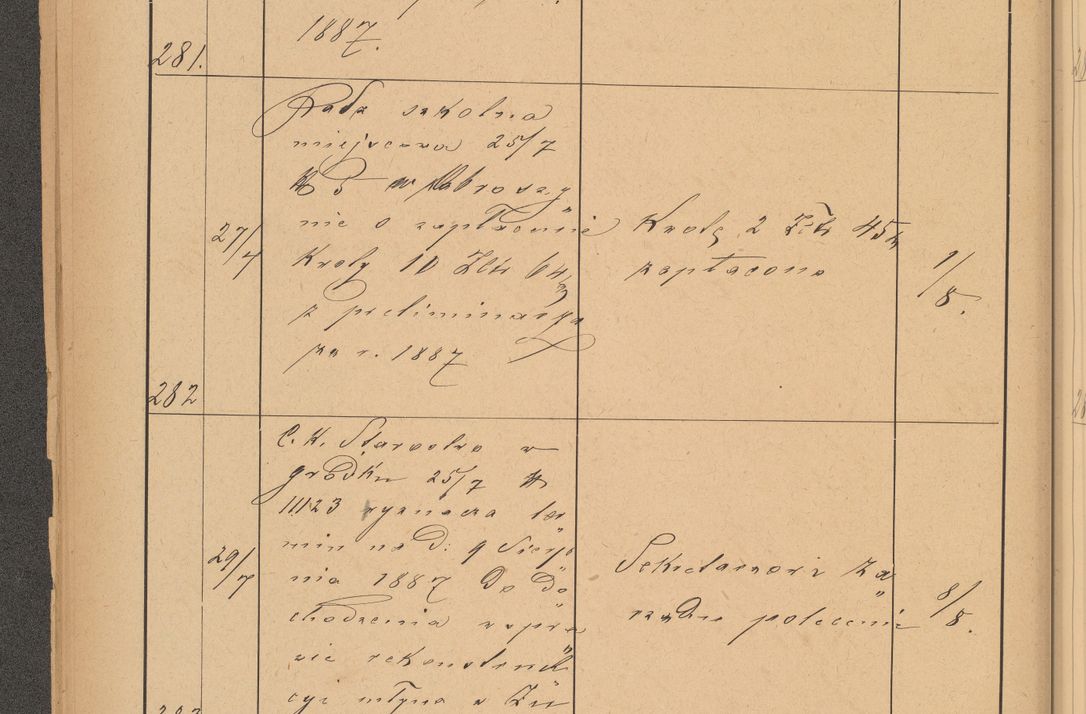 1887.
281.
Rada szkolna
miejscowa 25/7
№ 5 w Obroszy„
nie o zapłacenie
Kwoty 10 Złr 64
z preliminarza
za r. 1887
27/7
Kwotę 2 Złr 45
zapłacono
1/8.
282
C. K. Starostwo w
gródku 25/7 №
11123 wyznacza ter„
min na d: 9 Sierp„
nia 1887 do do„
chodzenia w spra„
wie rekonstruk„
cyi młyna w
29/7
Sekretarzowi Za„
rządu polecenie
8/8.